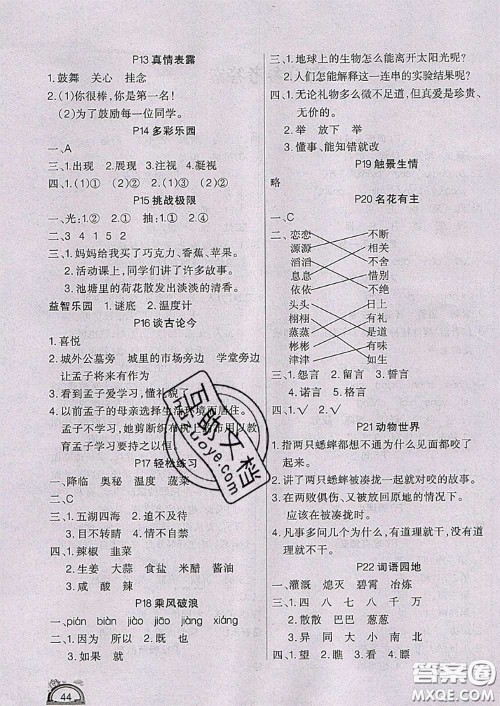 P13 真情表露
1. 鼓舞 关心 挂念
2. (1)你很棒,你是第一名!
(2)为了鼓励每一位同学。
P14 多彩乐园
一、A
三、1. 出现 2. 展现 3. 注视 4. 凝视
四、1. (1)① (2)② 2. (1)③ (2)① (3)②
P15 挑战极限
一、光:1. ② 2. ① 抽:1. ② 2. ①
二、3 4 1 5 2
三、1. 妈妈给我买了巧克力、香蕉、苹果。
2. 活动课上,同学们讲了许多故事。
3. 池塘里的荷花散发出淡淡的清香。
益智乐园 1. 谜底 2. 温度计
P16 谈古论今
1. 喜悦
2. 城外公墓旁 城里的市场旁边 学堂旁边
让孟子将来有作为
3. 看到孟子爱学习,懂礼貌了。
4. 以前孟子的母亲选择生活环境而居住。
孟子不学习,她剪断织布机上的布用以教
育孟子学习要持之以恒
P17 轻松练习
一、降临 奥秘 温度 蔬菜
二、C
三、1. 五湖四海 2. 迫不及待
3. 目不转睛 4. 情不自禁
四、1. 辣椒 韭菜
2. 生姜 大蒜 食盐 米醋 酱油
3. 咸 酸 辣
P18 乘风破浪
一、pián biàn jiào jiāo jiāng xiáng
二、1. 因为 所以 2. 也
3. 如果 就
44
三、1. 地球上的生物怎么能离开太阳光呢?
2. 人们怎能解释这一连串的实验结果呢?
四、1. 无论礼物多么微不足道,但真爱是珍贵、
无价的。
2. 举 放下 举
3. 懂事、能知错就改
P19 触景生情
略
P20 名花有主
一、C
二、恋恋 不断
源源 相关
滔滔 不舍
息息 惜别
依依 不绝
头头 日上
栩栩 有礼
蒸蒸 是道
彬彬 有味
津津 如生
三、1. 怨言 2. 留言 3. 誓言
4. 诺言 5. 格言
四、1. ✓ 2. ✓
P21 动物世界
1. 指两只蟋蟀都想不通为什么见面都咬了
起来。
2. 讲了两只蟋蟀被凑拢一起就对咬的故事。
3. 在两败俱伤、又被放回原地的情况下。
应该在被凑拢时。
4. 凡事多问几个为什么,有道理就干,没有
道理就不干。
P22 词语园地
一、灌溉 熄灭 碧霄 冶炼
三、1. 四 八 七 八 千 万
2. 散散 巴巴 葱葱
3. 前 异 同 大 小 南 北
四、1. 望 2. 瞧 3. 看 4. 瞟
答案圈
MXQE.COM